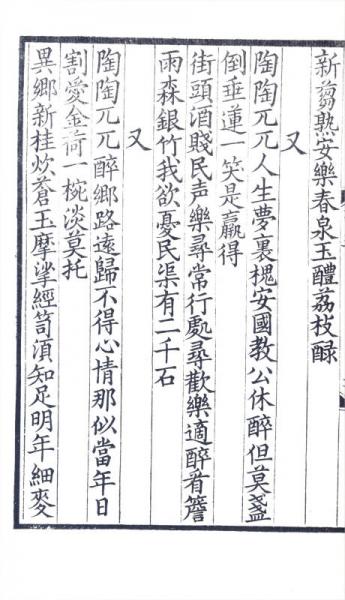 新蒭熟安樂春泉玉醴荔枝醁
又
陶陶兀兀人生夢裏槐安國教公休醉但莫盞
倒垂蓮一笑是贏得
街頭酒賤民声樂尋常行處尋歡樂適醉看簷
雨森銀竹我欲憂民渠有二千石
又
陶陶兀兀醉鄉路遠歸不得心情那似當年日
割愛金荷一椀淡莫托
異鄉新桂炊蒼玉摩挲經笥須知足明年細麥